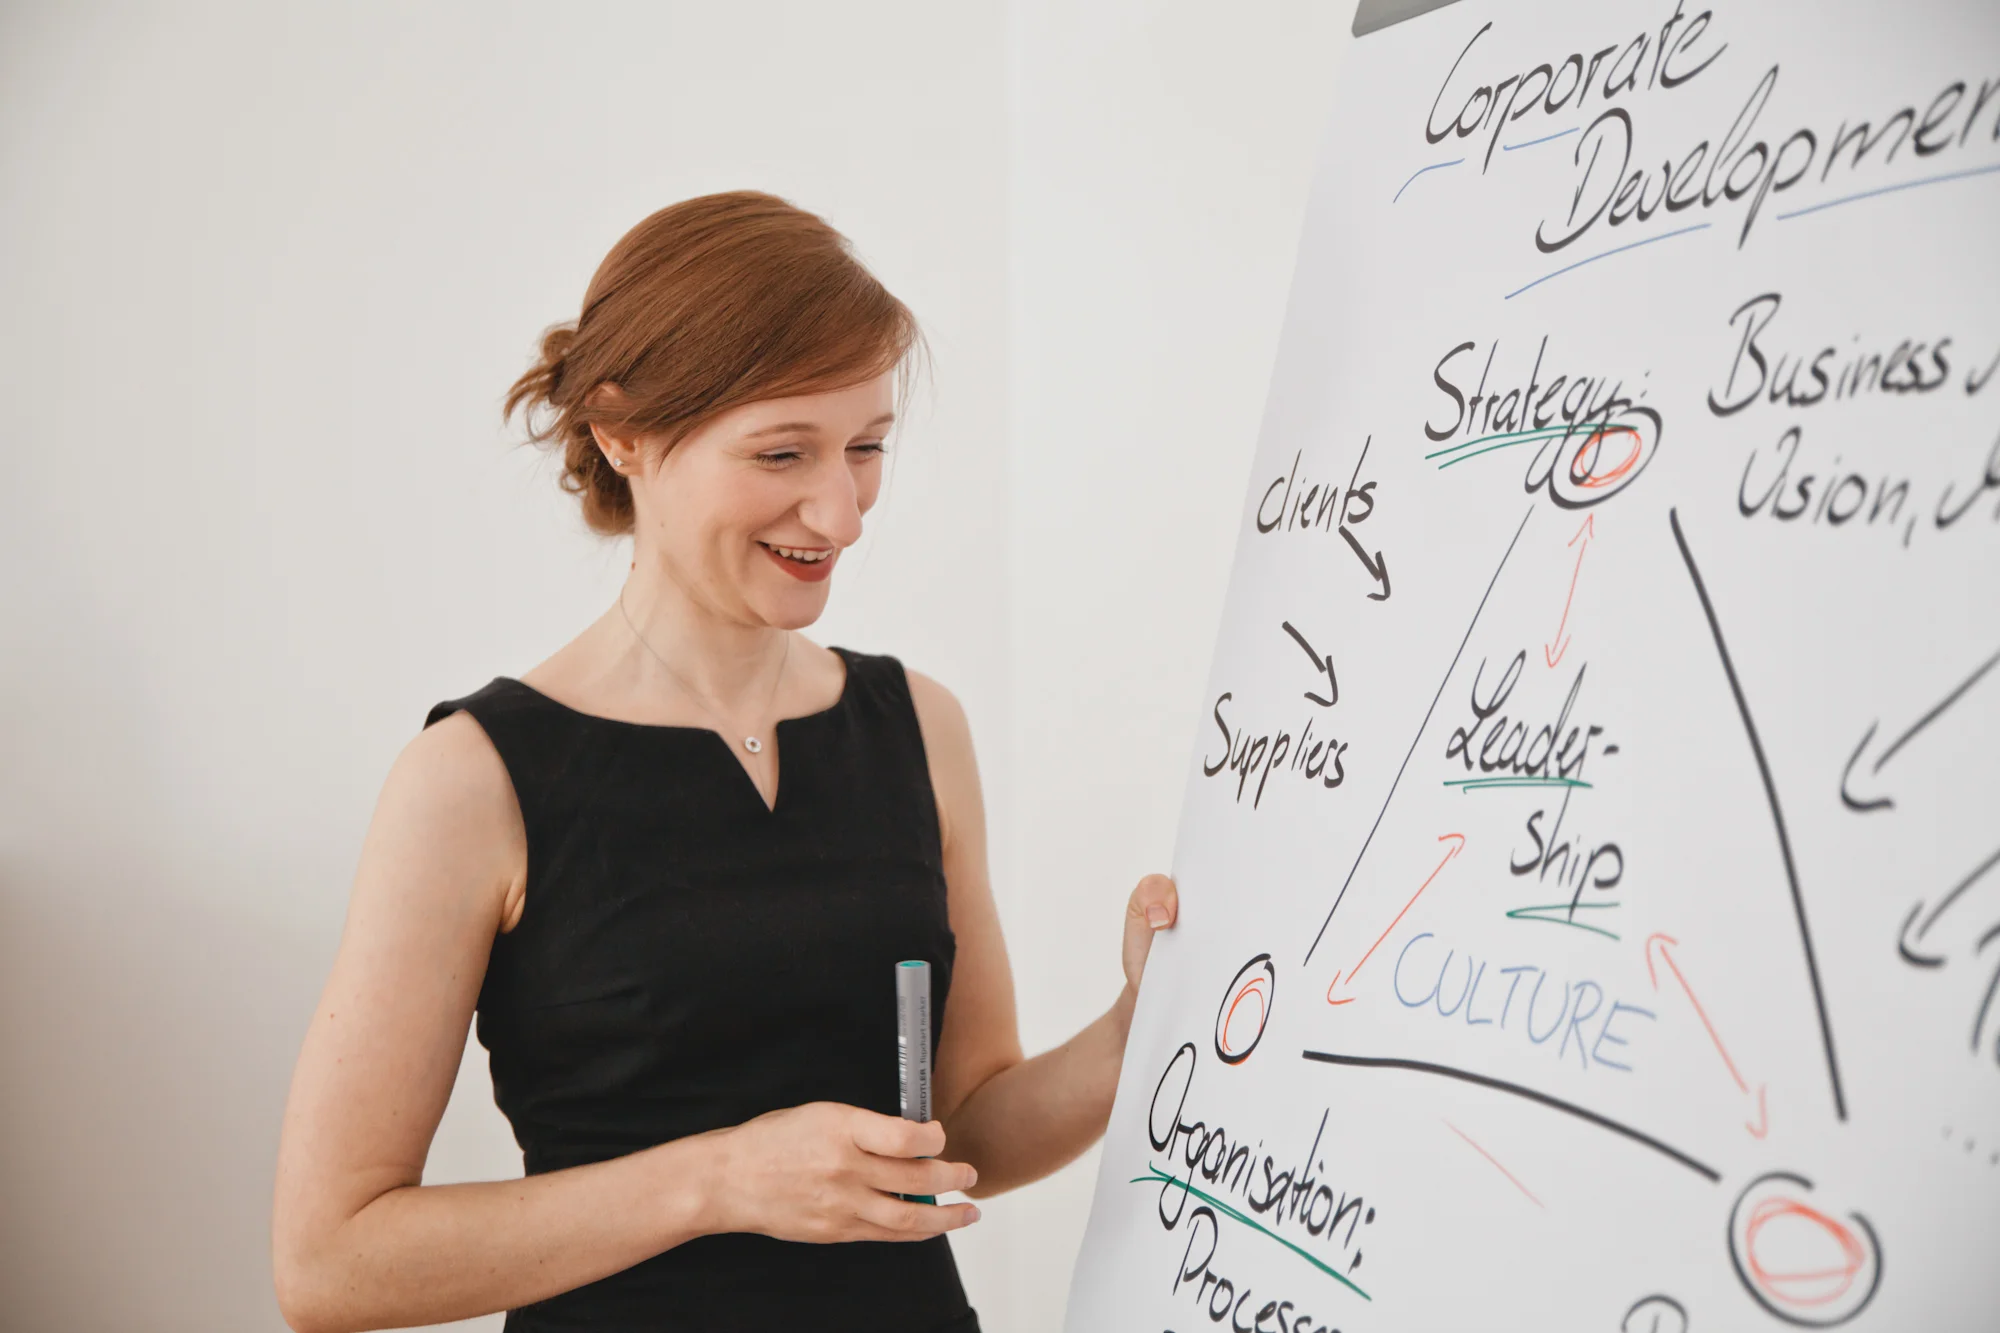 Corporate
Development
Strategy:
Business
Vision,
clients
Suppliers
Leader-
ship
CULTURE
Organisation:
Processes
STAEDTLER flipchart marker